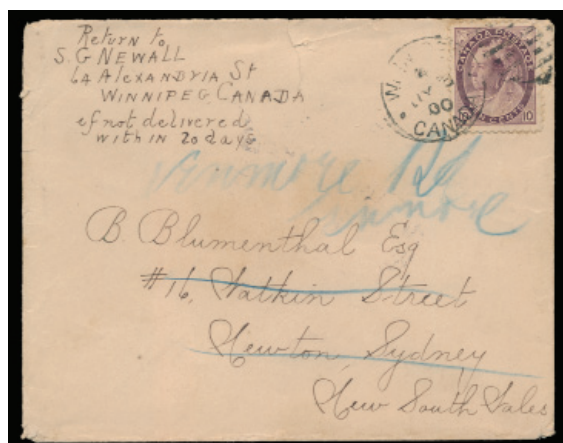 Return to
S. G NEWALL
64 Alexandria St
WINNIPEG, CANADA
if not delivered
with IN 20 days
CANADA POSTAGE
10 CENTS 10
00
CANADA
Rd
B. Blumenthal Esq
#16, Watkin Street
Newton, Sydney
New South Wales